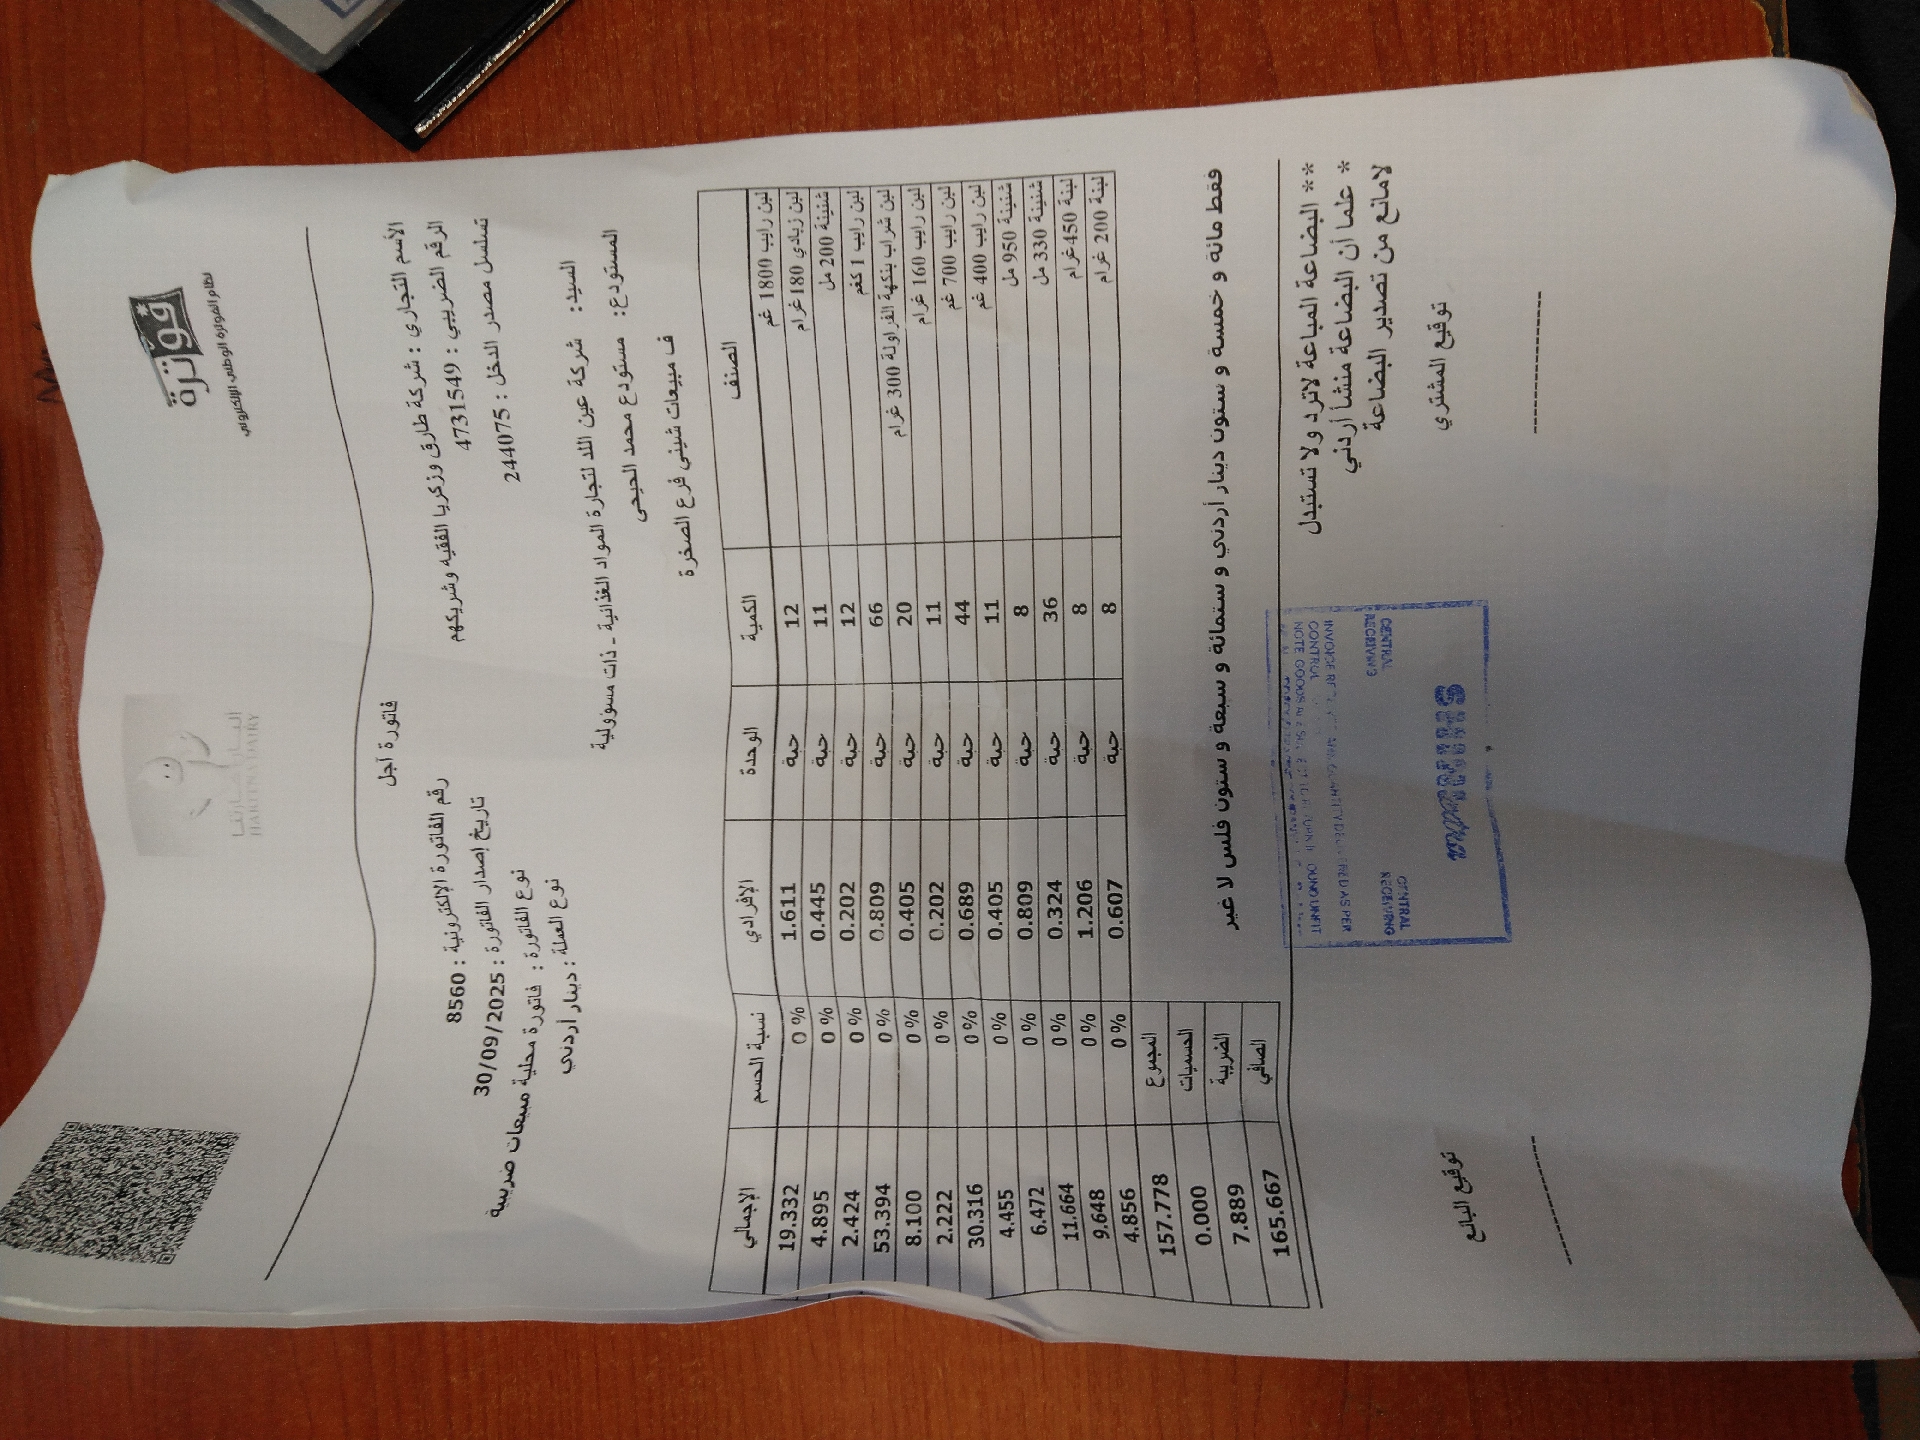 فوترة
نظام الفوترة الوطني الإلكتروني
HAREENA DAIRY
فاتورة آجل
الأسم التجاري : شركة طارق وزكريا الفقيه وشريكهم
رقم الفاتورة الإلكترونية : 8560
الرقم الضريبي : 4731549
تاريخ إصدار الفاتورة : 30/09/2025
تسلسل مصدر الدخل : 244075
نوع الفاتورة : فاتورة محلية مبيعات ضريبية
نوع العملة : دينار أردني
السيد: شركة عين اللد لتجارة المواد الغذائية - ذات مسؤولية
المستودع: مستودع محمد الحيحى
ف مبيعات شيني فرع الصخرة
الصنف الكمية الوحدة الإفرادي نسبة الحسم الإجمالي
لبن رايب 1800 غم 12 حبة 1.611 0 % 19.332
لبن زبادي 180غرام 11 حبة 0.445 0 % 4.895
شنينة 200 مل 12 حبة 0.202 0 % 2.424
لبن رايب 1 كغم 66 حبة 0.809 0 % 53.394
لبن شراب بنكهة الفراولة 300 غرام 20 حبة 0.405 0 % 8.100
لبن رايب 160 غرام 11 حبة 0.202 0 % 2.222
لبن رايب 700 غم 44 حبة 0.689 0 % 30.316
لبن رايب 400 غم 11 حبة 0.405 0 % 4.455
شنينة 950 مل 8 حبة 0.809 0 % 6.472
شنينة 330 مل 36 حبة 0.324 0 % 11.664
لبنة 450غرام 8 حبة 1.206 0 % 9.648
لبنة 200 غرام 8 حبة 0.607 0 % 4.856
المجموع 157.778
الحسميات 0.000
الضريبة 7.889
الصافي 165.667
فقط مائة و خمسة و ستون دينار أردني و ستمائة و سبعة و ستون فلس لا غير
** البضاعة المباعة لاترد ولا تستبدل
* علما أن البضاعة منشأ أردني
لامانع من تصدير البضاعة
NOTE GOODS
CONTROL
CENTRAL RECEIVING
CENTRAL RECEIVING
توقيع المشتري توقيع البائع